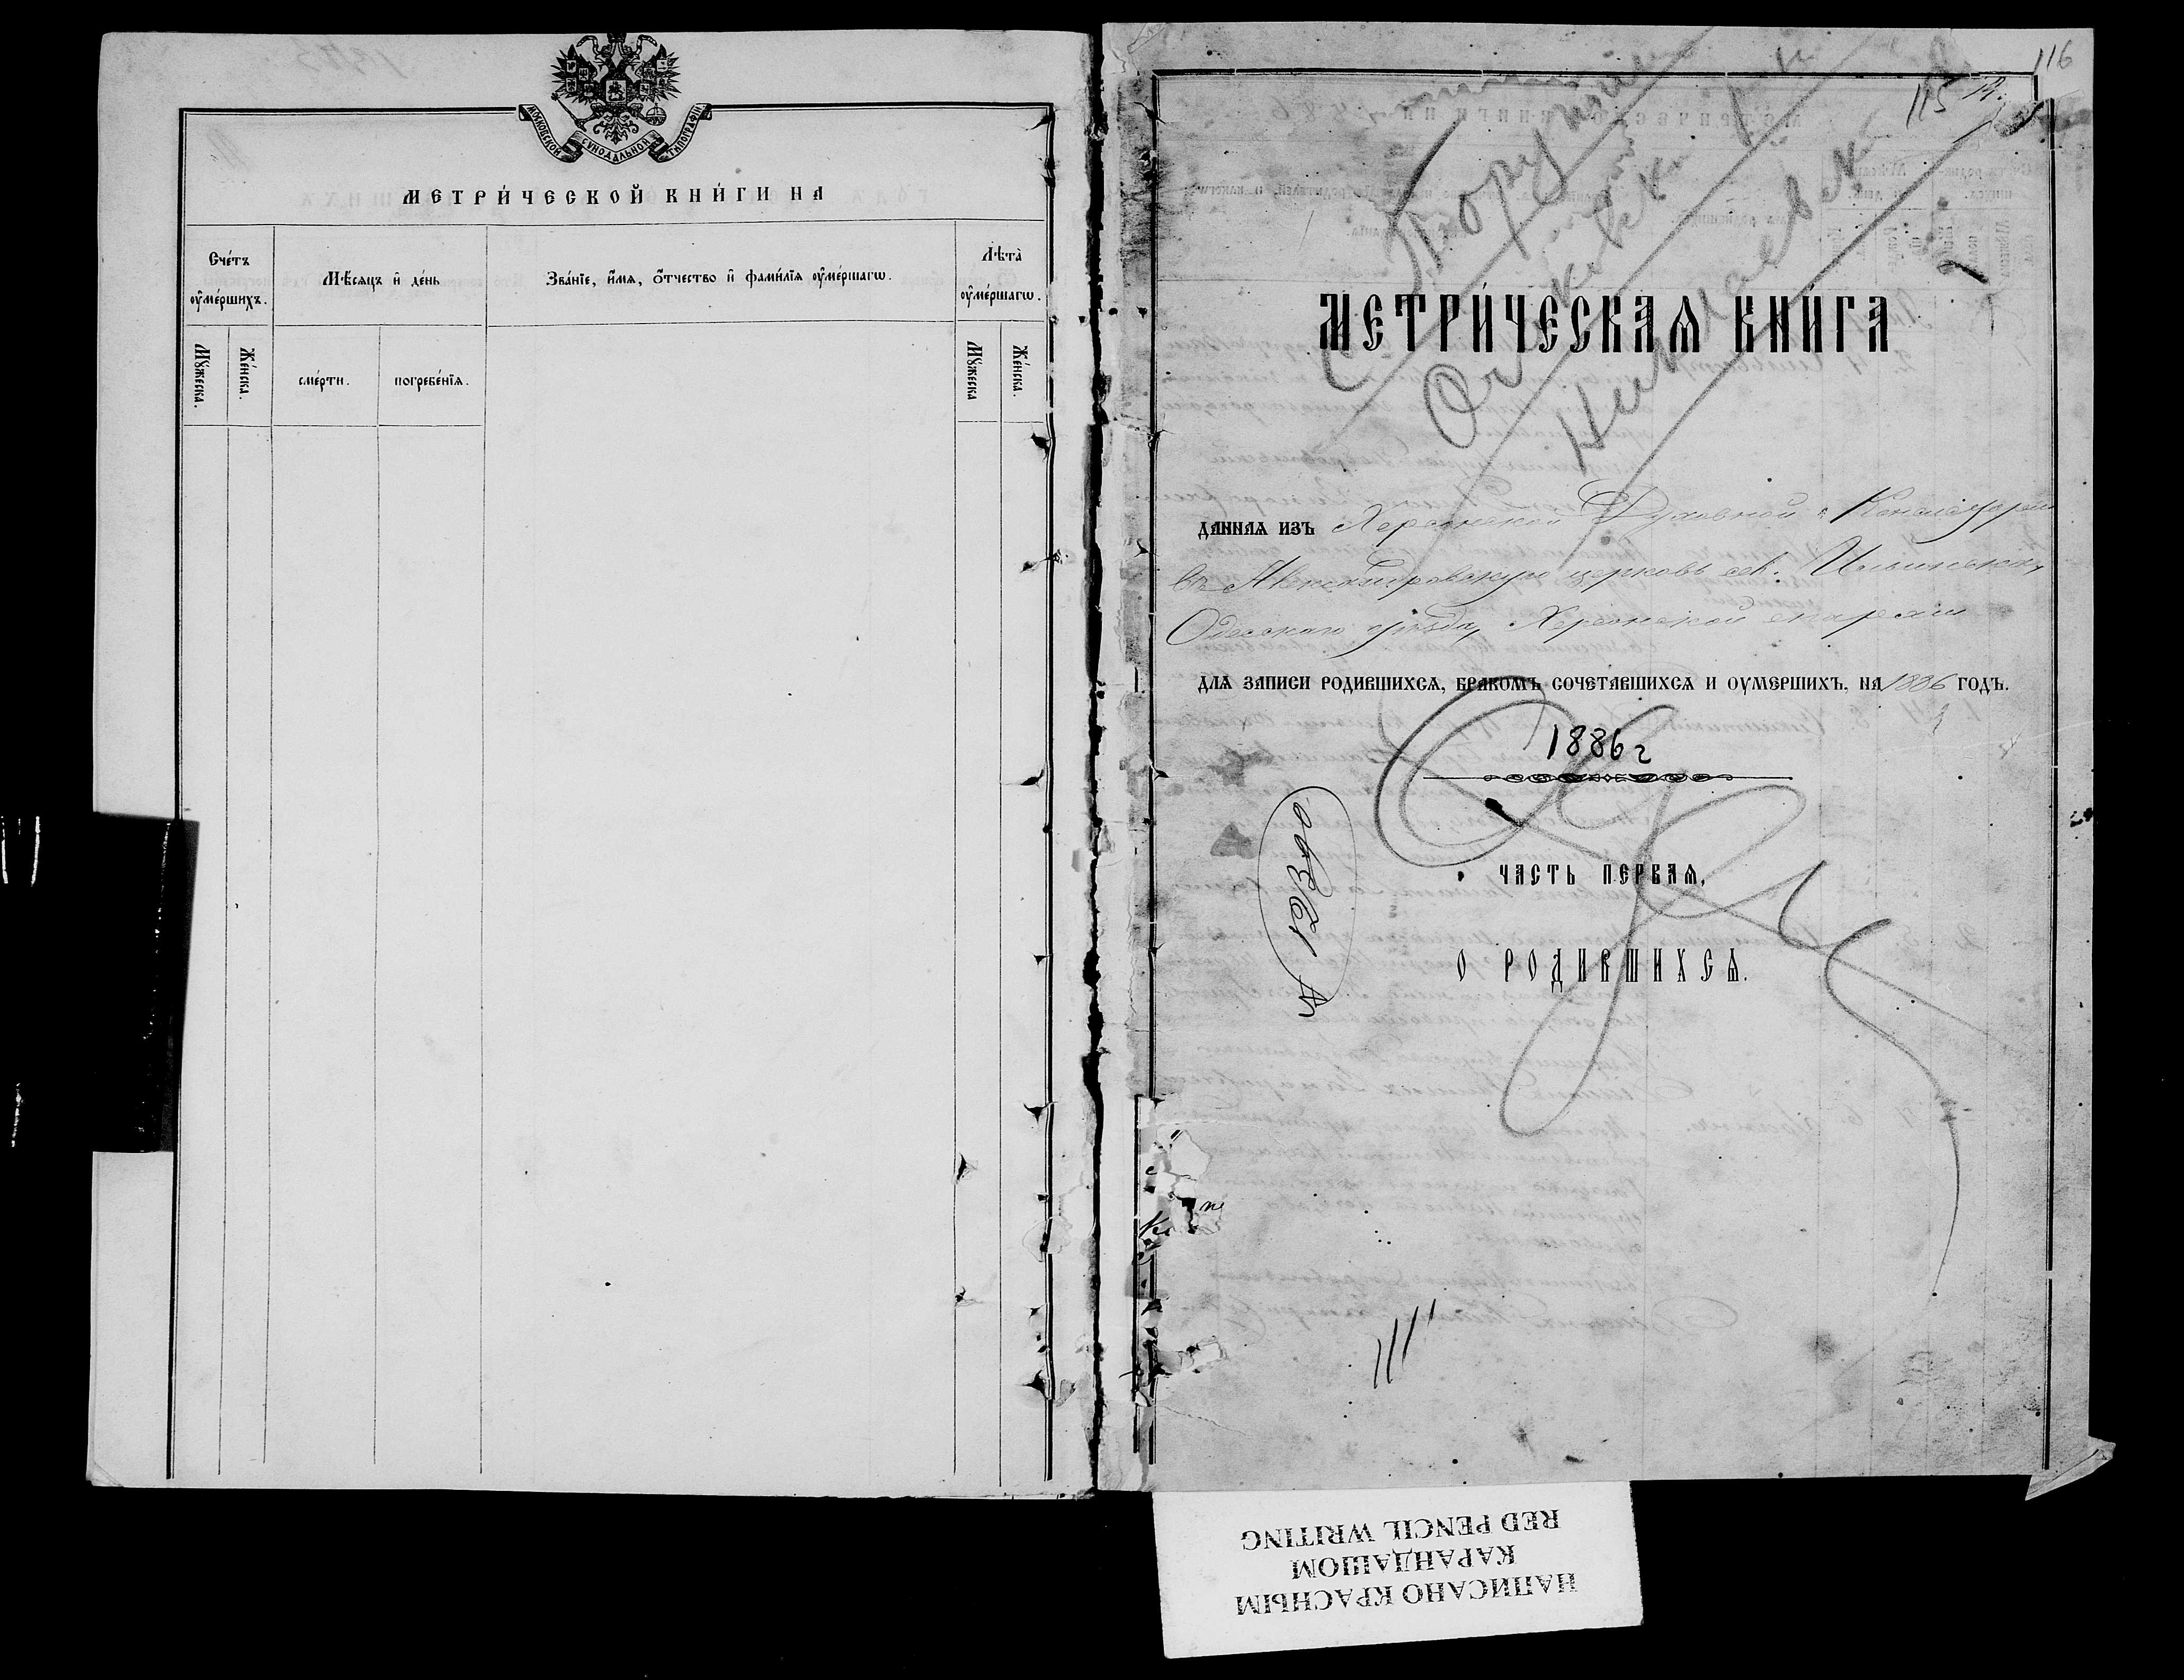 МОСКОВСКОЙ СѴНОДАЛЬНОЙ ТИПОГРАФІИ
МЕТРИ́ЧЕСКОЙ КНИ́ГИ НА
Сче́тъ оу҆ме́ршихъ.
Мѣ́сяцъ и҆ де́нь
Зва́нїе, и҆́мя, ѻ҆́тчество и҆ фами́лїя оу҆ме́ршагѡ.
Лѣ́та оу҆ме́ршагѡ.
Мꙋ́жеска.
Же́нска.
сме́рти.
погребе́нїя.
Мꙋ́жеска
Же́нска.
116
115
с. Порутино
Очаковск. р-н
Николаевск.
МЕТРИ́ЧЕСКАѦ КНИ́ГА
ДАННАѦ ИЗЪ Херсонской Духовной Консисторіи
въ Александровскую церковь сел. Ильинскаго,
Одесскаго уѣзда, Херсонской епархіи
ДЛѦ ЗАПИСИ РОДИВШИХСѦ, БРАКОМЪ СОЧЕТАВШИХСѦ И ОУМЕРШИХЪ, НА 1886 ГОДЪ.
1886 г
ЧАСТЬ ПЕРВАѦ,
О РОДИВШИХСѦ.
НАПИСАНО КРАСНЫМ
КАРАНДАШОМ
RED PENCIL WRITING